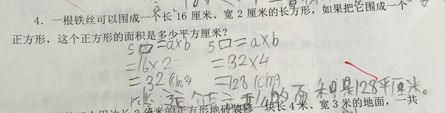 4. 一根铁丝可以围成一个长 16 厘米、宽 2 厘米的长方形，如果把它围成一个
正方形，这个正方形的面积是多少平方厘米？
S□=a×b S□=a×b
=16×2 =32×4
=32(cm =128(cm
方 的面积是128平厘米。
正方形地砖装修一块长 4 米、宽 3 米的地面，一共